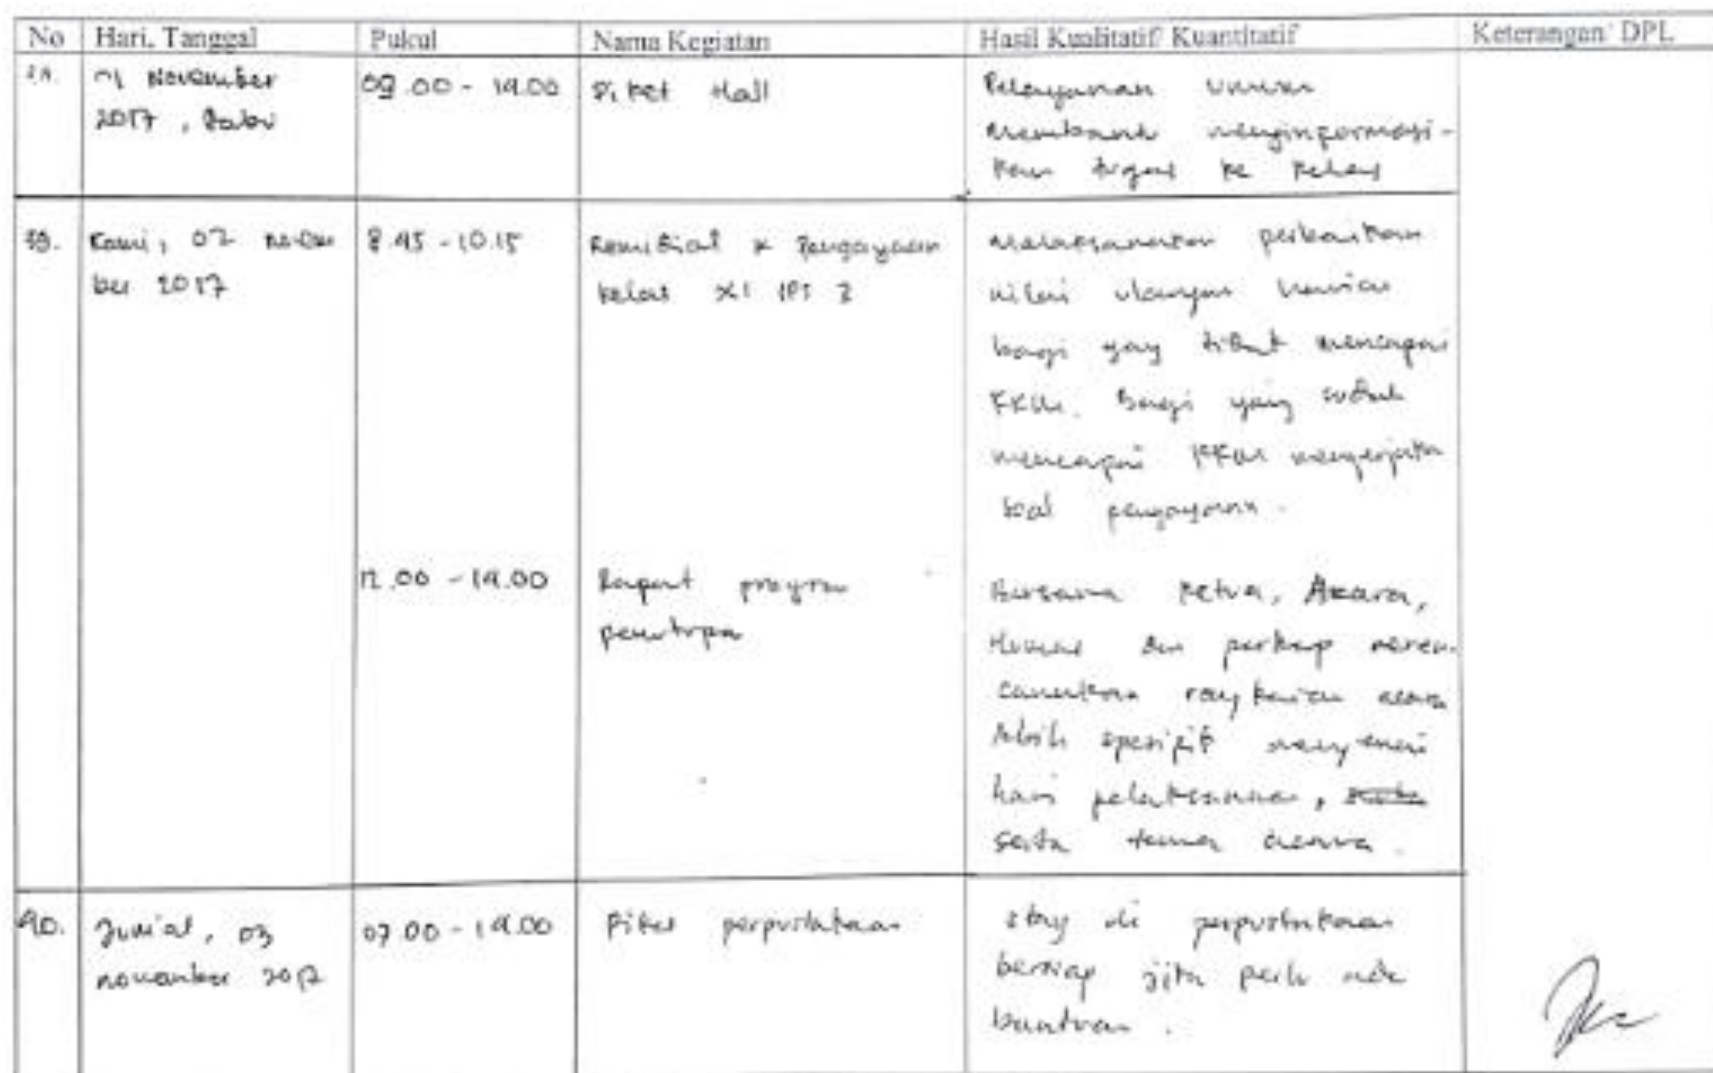 No Hari, Tanggal Pukul Nama Kegiatan Hasil Kualitatif/ Kuantitatif Keterangan/ DPL
38. 01 November 09.00 - 14.00 Piket Hall Pelayanan umum
2017, Rabu Membantu menginformasi-
kan tugas ke kelas
39. Kamis, 02 Novem 8.45 - 10.15 Remidial & Pengayaan Melaksanakan perbaikan
ber 2017 kelas XI IPS 3 nilai ulangan harian
bagi yang tidak mencapai
KKM. Bagi yang sudah
mencapai KKM mengerjakan
soal pengayaan.
12.00 - 14.00 Rapat program Bersama Ketua, Acara,
penutupan Humas dan perkap meren-
canakan rangkaian acara
lebih spesifik mengenai
hari pelaksanaan,
serta tema acara.
40. Jum'at, 03 07.00 - 14.00 Piket perpustakaan stay di perpustakaan
november 2017 bersiap jika perlu ada
bantuan.